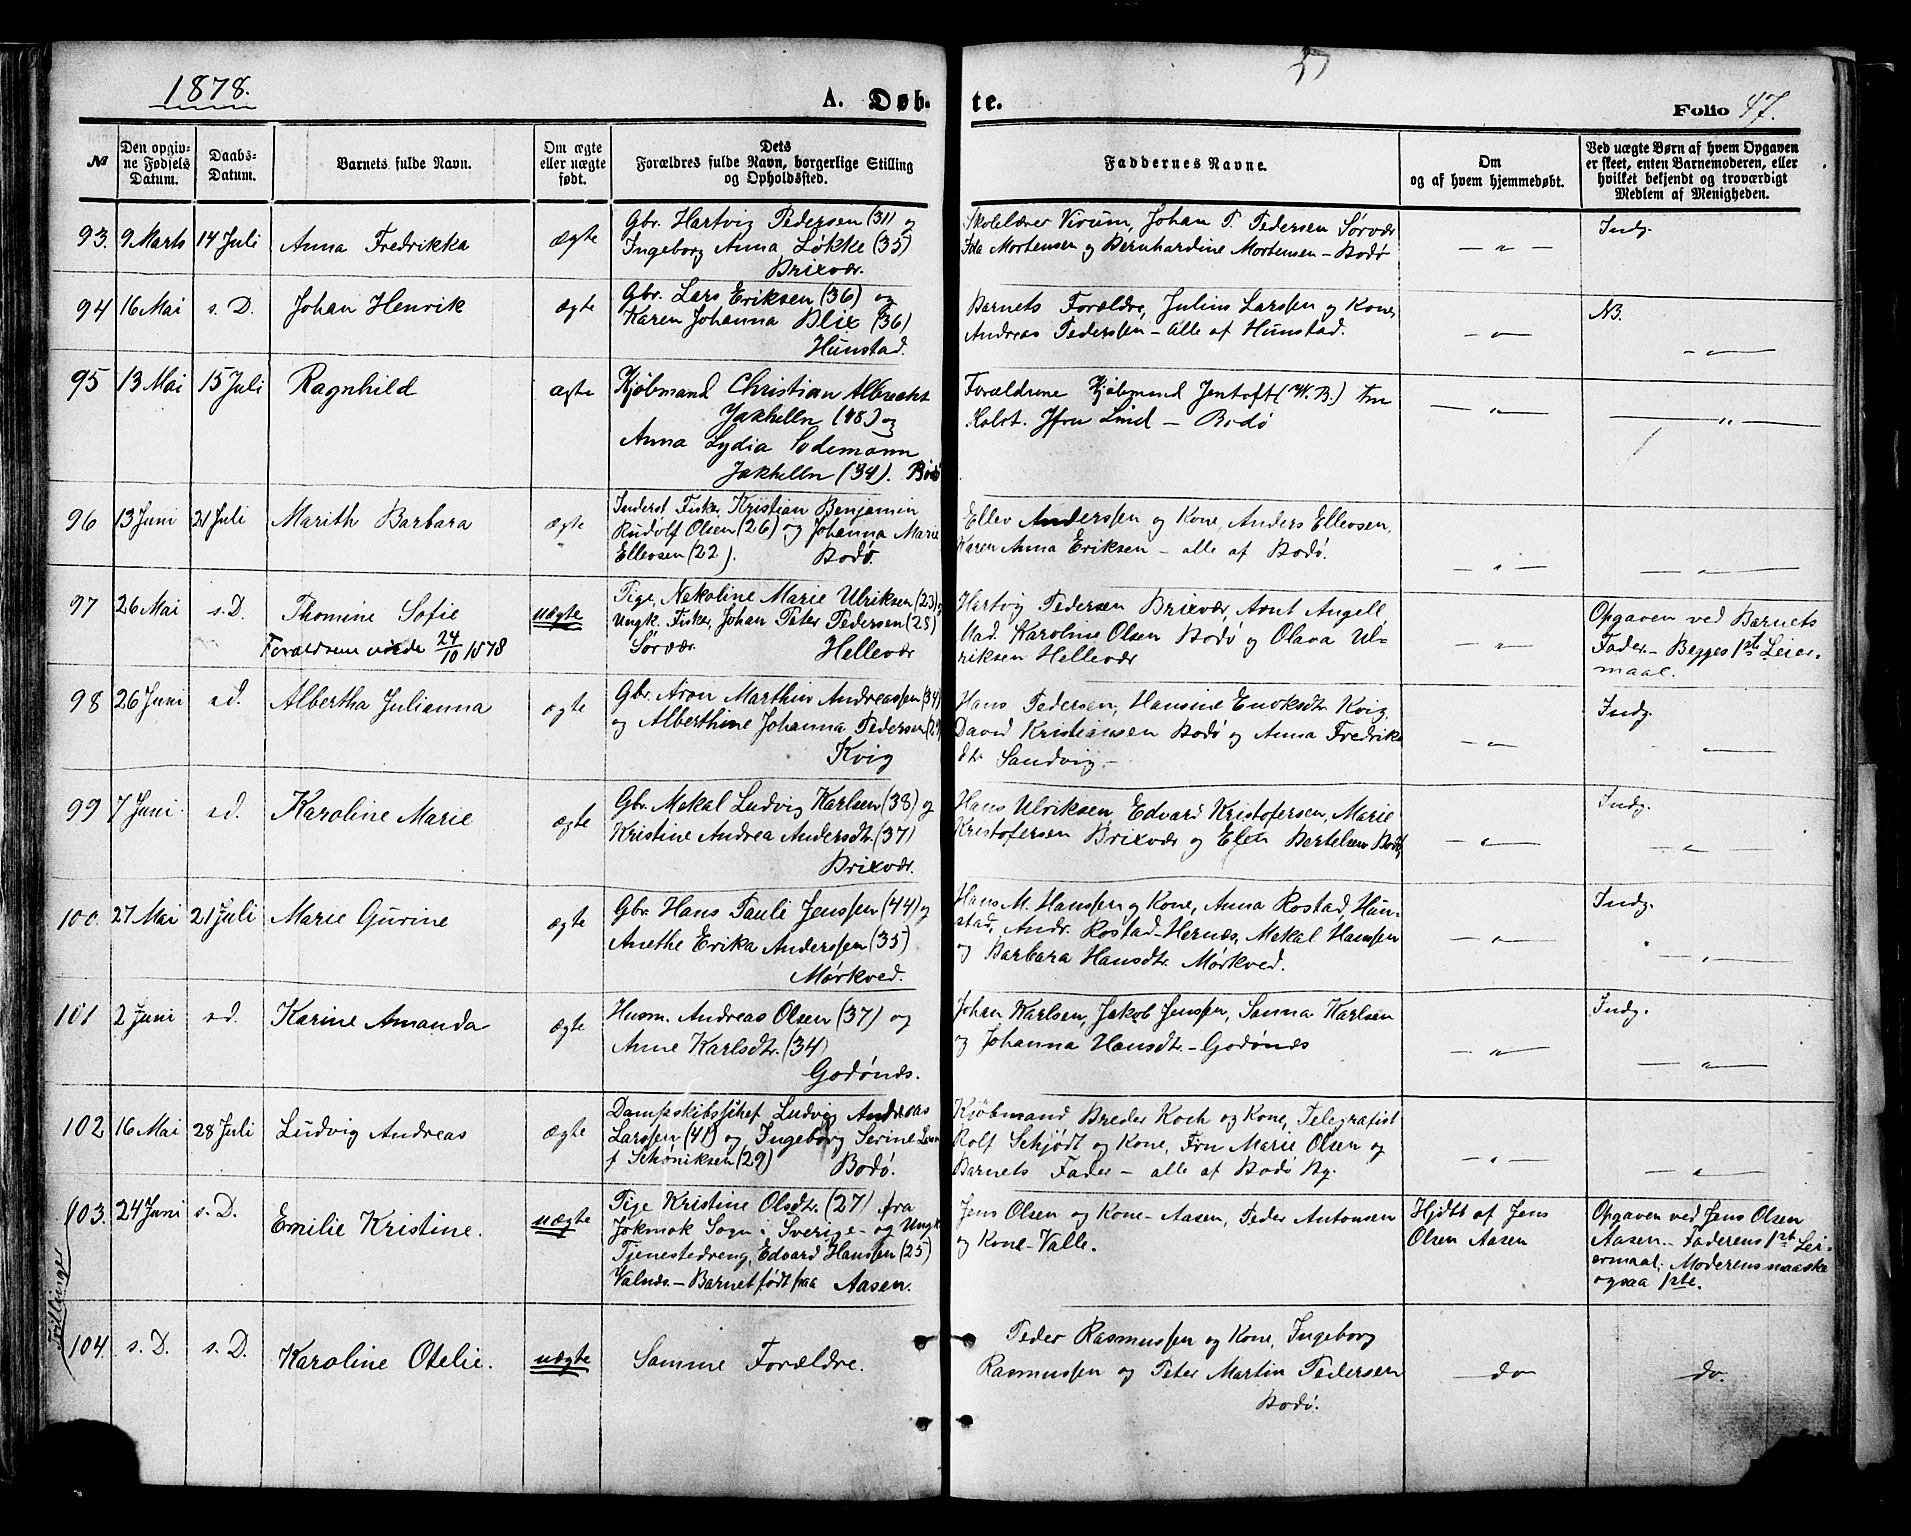 1878.
A. Døb-
te.
Folio 47.
№
Den opgiv-
ne Fødsels
Datum.
Daabs-
Datum.
Barnets fulde Navn.
Om ægte
eller uægte
født.
Dets
Forældres fulde Navn, borgerlige Stilling
og Opholdsted.
Faddernes Navne.
Om
og af hvem hjemmedøbt.
Ved uægte Børn af hvem Opgaven
er skeet, enten Barnemoderen, eller
hvilket bekjendt og troværdigt
Medlem af Menigheden.
93. 9 Marts 14 Juli Anna Fredrikka ægte
Gbr. Hartvig Pedersen (31) og
Ingeborg Anna Løkke (35)
Brixvær.
Skolelærer Virum, Johan P. Pedersen Sørvær
Ida Mortensen og Bernhardine Mortensen – Bodø
— " —
Indg.
94 16 Mai s. D. Johan Henrik ægte
Gbr. Lars Eriksen (36) og
Karen Johanna Blix (36)
Hunstad.
Barnets Forældre, Julius Larssen og Kone,
Andreas Pederssen – alle af Hunstad.
— " —
NB.
— " —
95 13 Mai 15 Juli Ragnhild ægte
Kjøbmand Christian Albrecht
Jakhelln (48) og
Anna Lydia Sodemann
Jakhelln (34). Bodø
Forældrene Kjøbmand Jentoft (W. B.) Fru
Holst. Jfru Lind – Bodø
— " —
— " —
96 13 Juni 21 Juli Marith Barbara ægte
Inderst Fisker, Kristian Benjamin
Rudolf Olsen (26) og Johanna Marie
Ellevsen (22). Bodø.
Ellev Anderssen og Kone, Anders Ellevsen,
Karen Anna Eriksen – alle af Bodø.
— " —
— " —
97 26 Mai s. D. Thomine Sofie uægte
Forældrene viede 24/10 1878
Pige, Nekoline Marie Ulriksen (23) og
Ungk. Fisker, Johan Peter Pedersen (28)
Sørvær. Hellevær
Hartvig Pedersen Brixvær, Arnt Angell
Mad. Karoline Olsen Bodø og Olava Ul-
riksen Hellevær
— " —
Opgaven ved Barnets
Fader – Begges 1ste Leier-
maal.
98 26 Juni s. d. Albertha Julianna ægte
Gbr. Aron Marthin Andreassen (34)
og Alberthine Johanna Pedersen (29)
Kvig
Hans Pedersen, Hansine Enoksdtr. Kvig,
David Kristiansen Bodø og Anna Fredriks
dtr. Sandvig –
— " —
Indg.
— " —
99 7 Juni s. d. Karoline Marie ægte
Gbr. Mekal Ludvig Karlsen (38) og
Kristine Andrea Andersdtr. (37)
Brixvær.
Hans Ulriksen, Edvard Kristofersen, Marie
Kristofersen Brixvær og Elen Bertelsen Bodø
— " —
Indg.
— " —
100. 27 Mai 21 Juli Marie Gurine ægte
Gbr. Hans Pauli Jenssen (44) og
Anethe Erika Anderssen (35)
Mørkved.
Hans M. Hanssen og Kone, Anna Rostad, Hun-
stad, Andr. Rostad – Hernæs, Mekal Hanssen
og Barbara Hansdtr. Mørkved.
— " —
Indg.
— " —
101 2 Juni s. d. Karine Amanda ægte
Husm. Andreas Olsen (37) og
Anne Karlsdtr. (34)
Godønæs.
Johan Karlsen, Jakob Jenssen, Sanna Karlsen
og Johanna Hansdtr. – Godønæs
— " —
Indg.
— " —
102 16 Mai 28 Juli Ludvig Andreas ægte
Dampskibschef Ludvig Andreas
Larssen (41) og Ingeborg Serine
f Schøniksen (29) Bodø.
Kjøbmand Breder Koch og Kone, Telegrafist
Rolf Schjødt og Kone, Fru Marie Olsen og
Barnets Fader – alle af Bodø By.
— " —
— " —
Tvillinger
103. 24 Juni s. D. Emilie Kristine. uægte
Pige Kristine Olsdtr. (27) fra
Jokmok Sogn i Sverige – og Ungk.
Tjenestedreng, Edvard Hanssen (25)
Valnæs. – Barnet født paa Aasen.
Jens Olsen og Kone – Aasen, Peder Antonsen
og Kone – Valle.
Hjdbt af Jens
Olsen Aasen
Opgaven ved Jens Olsen
Aasen – Faderens 1ste Lei-
ermaal; Moderens maaske
ogsaa 1ste.
104. s. D. s. D. Karoline Otelie. uægte
Samme Forældre.
Peder Rasmussen og Kone, Ingeborg
Rasmussen og Peter Martin Pedersen
Bodø.
— do —
— do. —